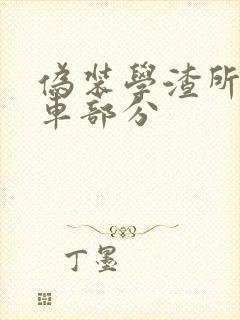 偽裝學渣所
車部分
丁墨